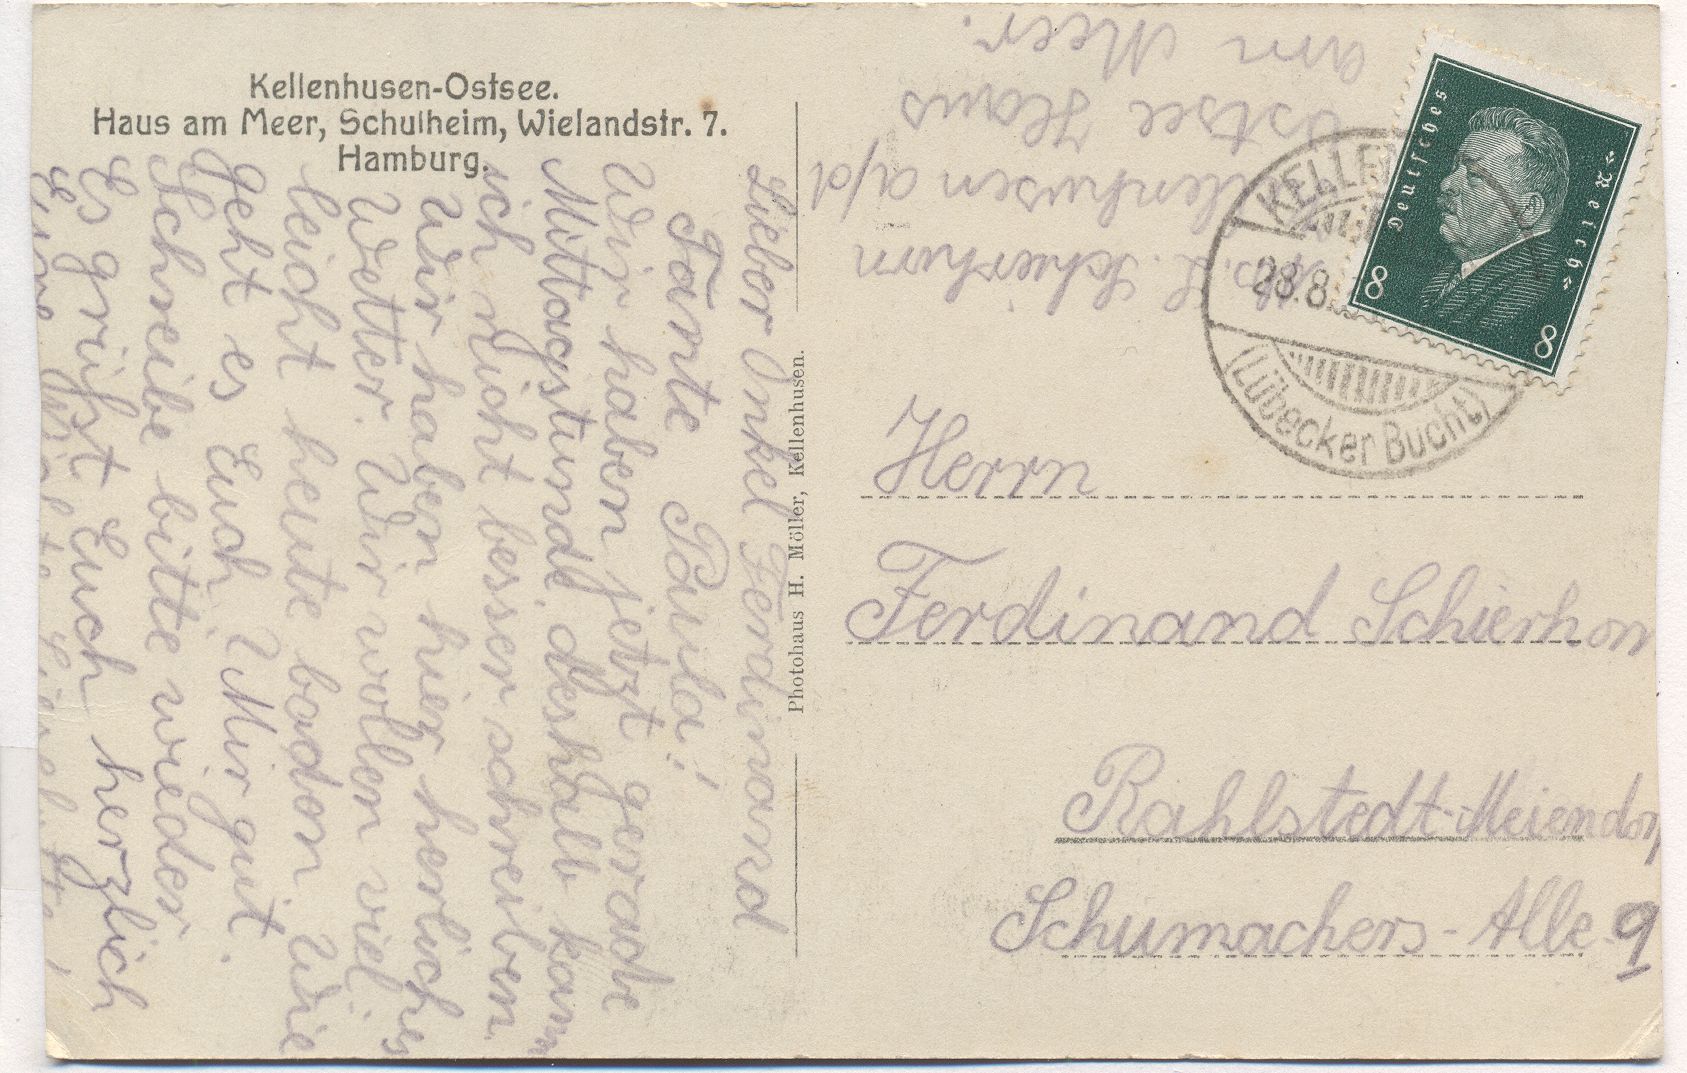 Kellenhusen-Ostsee.
Haus am Meer, Schulheim, Wielandstr. 7.
Hamburg.
Lieber Onkel Ferdinand
Tante Paula!
Wir haben jetzt gerade
Mittagstunde, deshalb kann
ich nicht besser schreiben.
Wir haben hier herliches
Wetter. Wir wollen viel
leicht heute baden. Wie
geht es Euch, Mir gut.
Schreibe bitte wieder
Es grüßt Euch herzlich
Eure
Photohaus H. Möller, Kellenhusen.
Schierhorn
Kellenhusen a/d
Ostsee Haus
am Meer.
Deutsches Reich
8
8
KELLEN
28.8.
(Lübecker Bucht)
Herrn
Ferdinand Schierhorn
Rahlstedt-Meiendorf
Schumachers-Alle 9